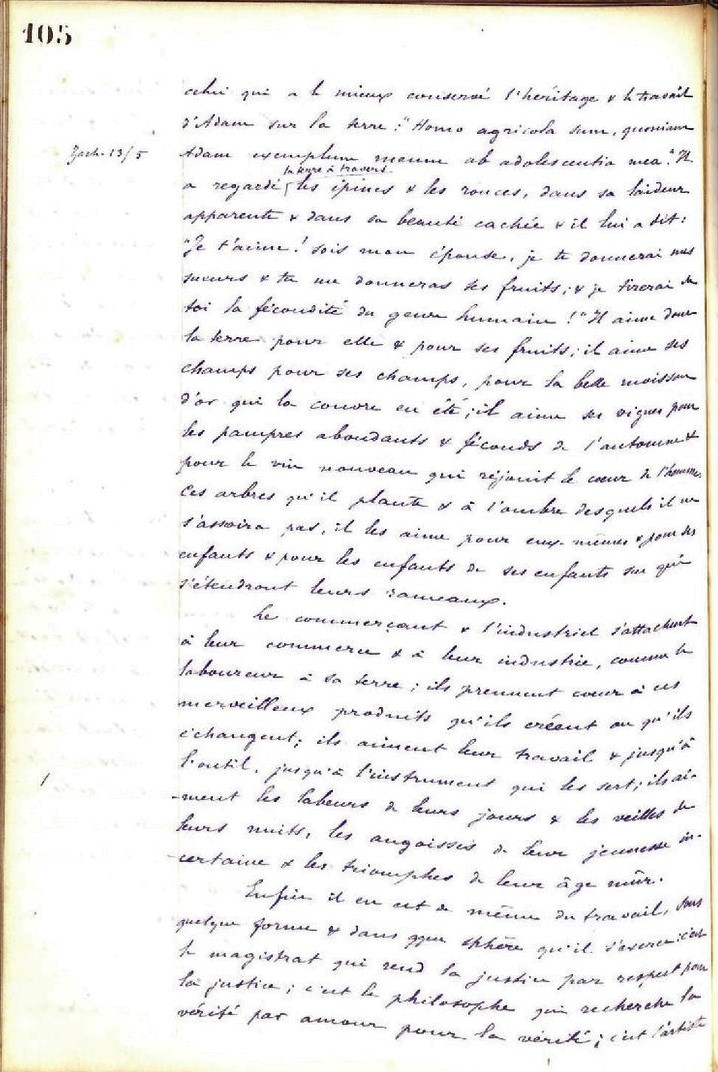 105
celui qui a le mieux conservé l'héritage & le travail
d'Adam sur la terre : "Homo agricola sum, quoniam
Zach. 13/5
Adam exemplum meum ab adolescentia mea." Il
la terre à travers
a regardé les épines & les ronces, dans sa laideur
apparente & dans sa beauté cachée & il lui a dit :
"Je t'aime ! sois mon épouse, je te donnerai mes
sueurs & tu me donneras tes fruits ; & je tirerai de
toi la fécondité du genre humain !" Il aime donc
la terre pour elle & pour ses fruits ; il aime ses
champs pour ses champs, pour la belle moisson
d'or qui la couvre en été ; il aime ses vignes pour
les pampres abondants & féconds de l'automne &
pour le vin nouveau qui réjouit le cœur de l'homme.
Ces arbres qu'il plante & à l'ombre desquels il ne
s'assoira pas, il les aime pour eux-mêmes & pour ses
enfants & pour les enfants de ses enfants sur qui
s'étendront leurs rameaux.
Le commerçant & l'industriel s'attachent
à leur commerce & à leur industrie, comme le
laboureur à sa terre ; ils prennent cœur à ces
merveilleux produits qu'ils créent ou qu'ils
échangent ; ils aiment leur travail & jusqu'à
l'outil, jusqu'à l'instrument qui les sert ; ils ai-
-ment les labeurs de leurs jours & les veilles de
leurs nuits, les angoisses de leur jeunesse in-
-certaine & les triomphes de leur âge mûr.
Enfin il en est de même du travail, sous
quelque forme & dans qque sphère qu'il s'exerce : c'est
le magistrat qui rend la justice par respect pour
la justice ; c'est le philosophe qui recherche la
vérité par amour pour la vérité ; c'est l'artiste